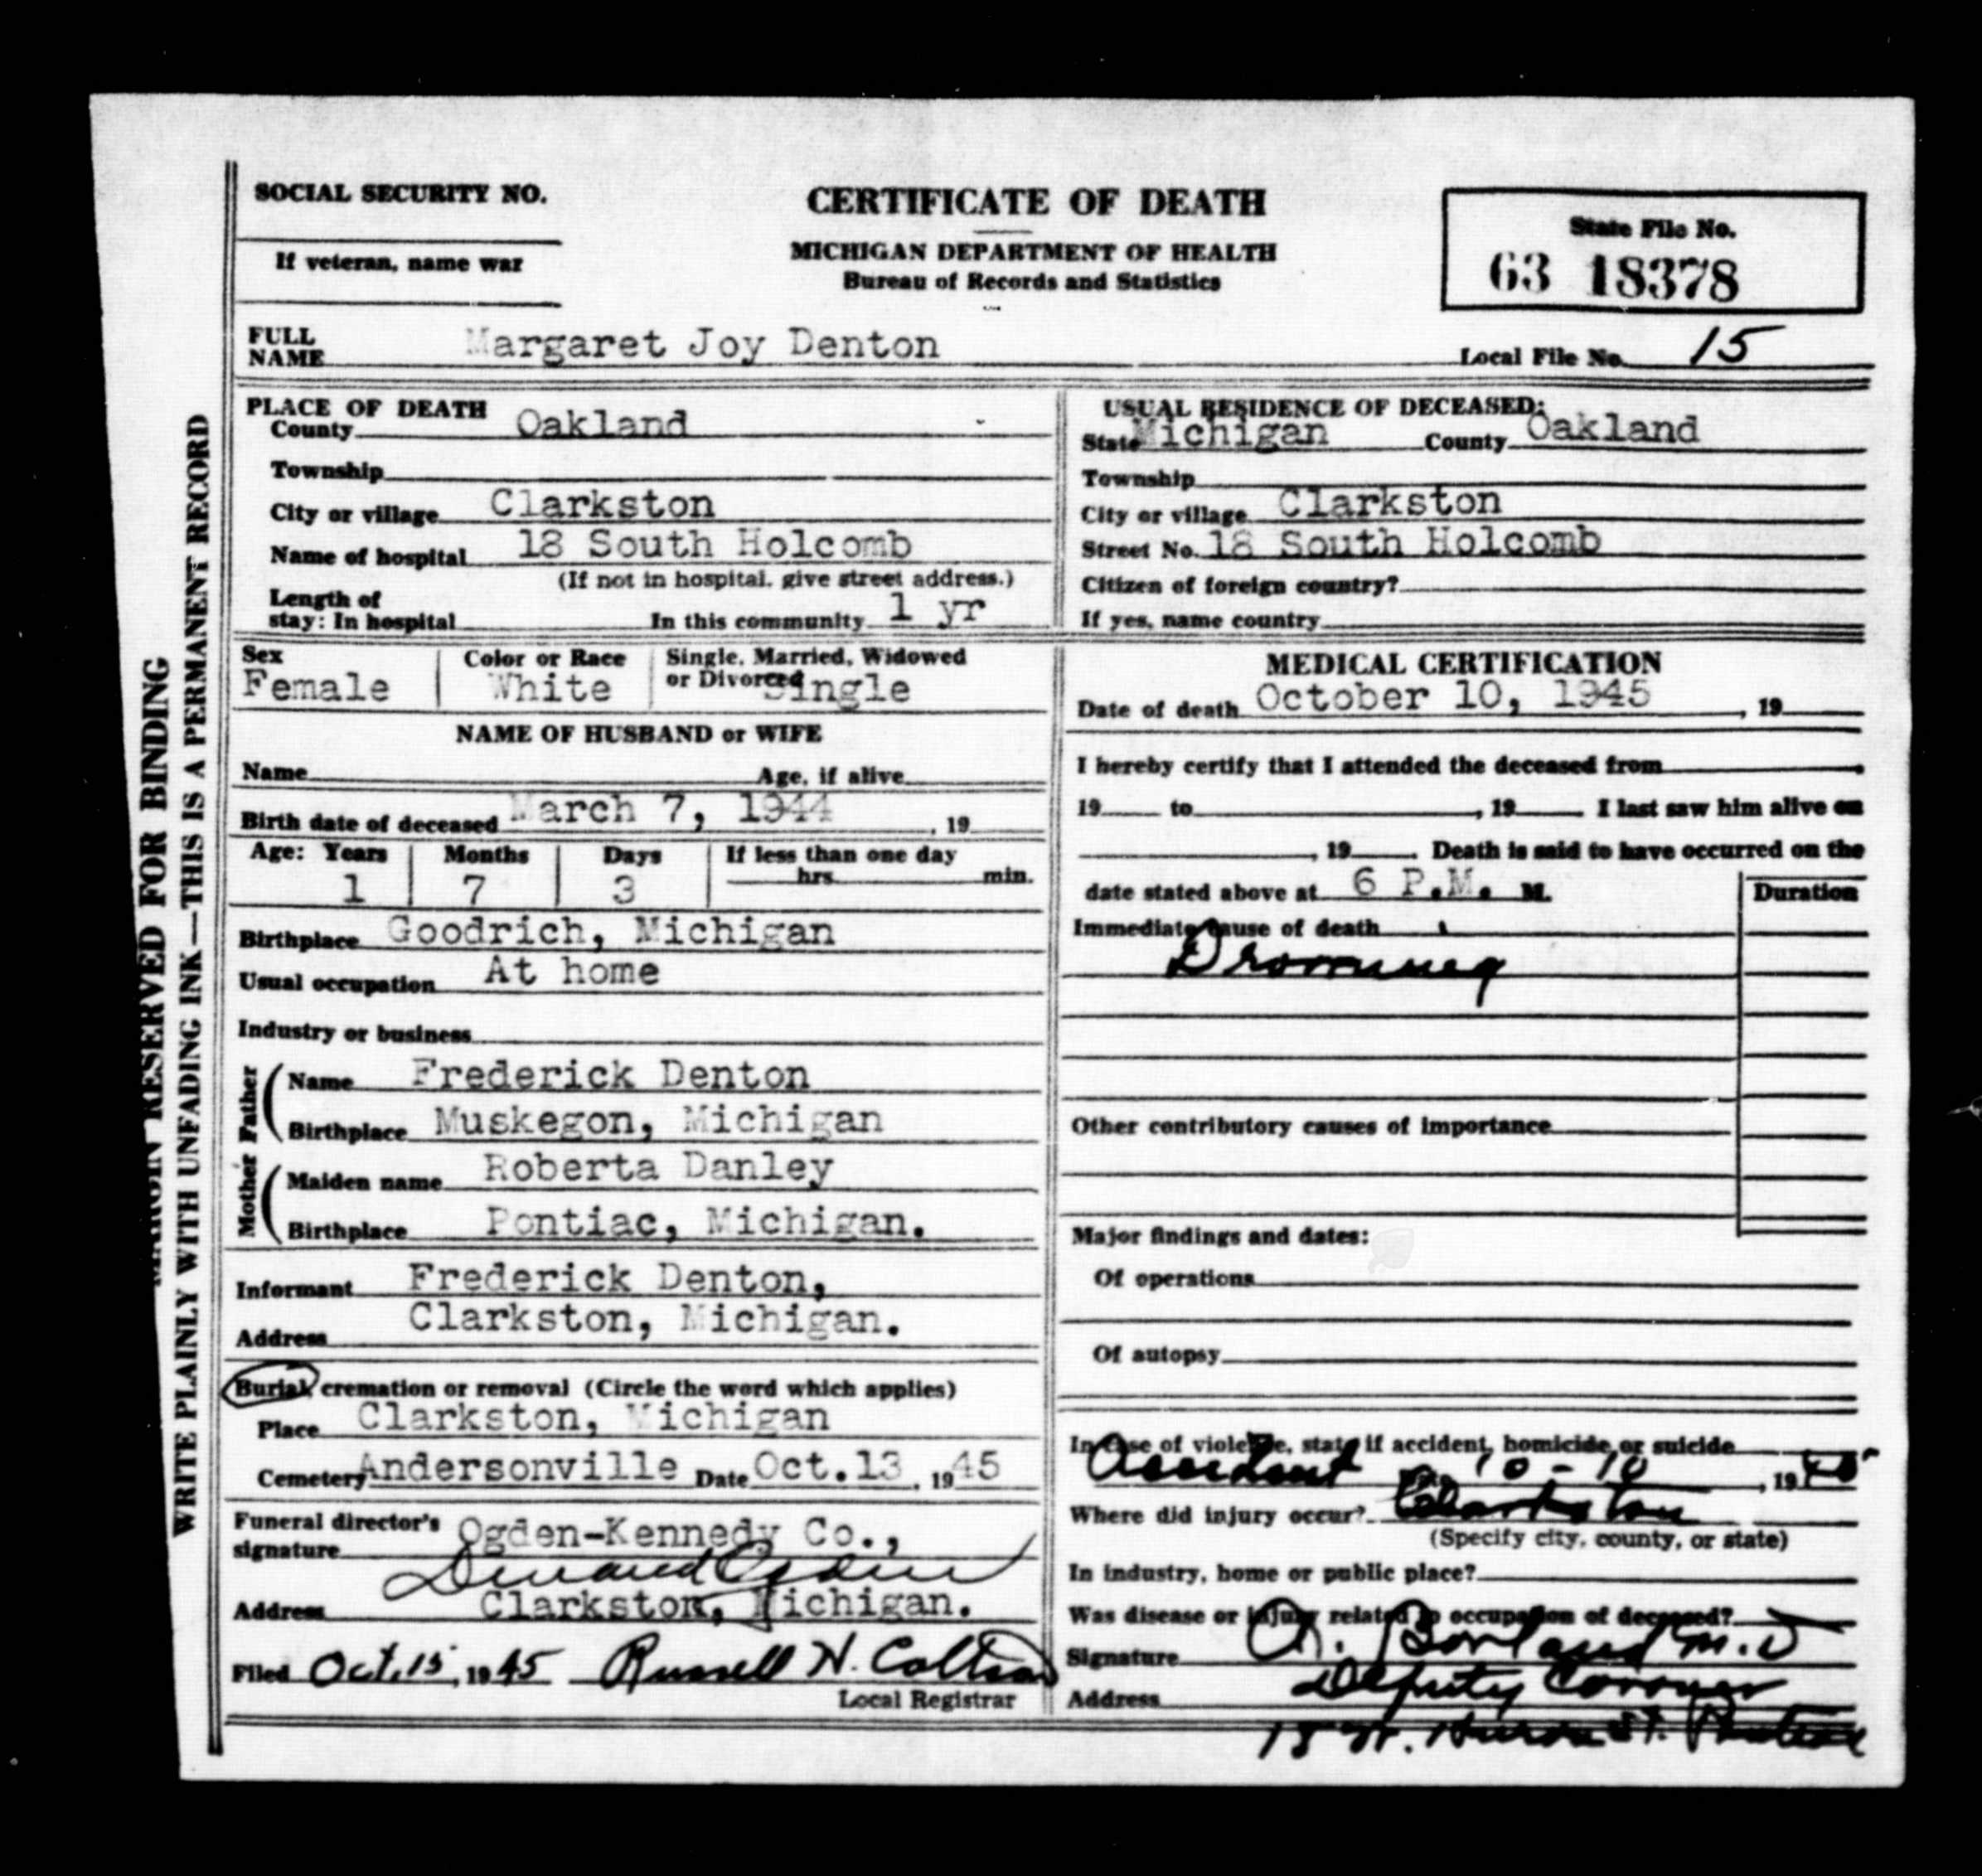 SOCIAL SECURITY NO.
If veteran, name war
CERTIFICATE OF DEATH
MICHIGAN DEPARTMENT OF HEALTH
Bureau of Records and Statistics
State File No.
63 18378
FULL NAME Margaret Joy Denton
Local File No. 15
PLACE OF DEATH
County Oakland
Township
City or village Clarkston
Name of hospital 18 South Holcomb
(If not in hospital, give street address.)
Length of stay: In hospital In this community 1 yr
USUAL RESIDENCE OF DECEASED:
State Michigan County Oakland
Township
City or village Clarkston
Street No. 18 South Holcomb
Citizen of foreign country?
If yes, name country
Sex Female
Color or Race White
Single, Married, Widowed or Divorced Single
NAME OF HUSBAND or WIFE
Name Age, if alive
Birth date of deceased March 7, 1944, 19
Age: Years Months Days If less than one day
1 7 3 hrs. min.
Birthplace Goodrich, Michigan
Usual occupation At home
Industry or business
Father
Name Frederick Denton
Birthplace Muskegon, Michigan
Mother
Maiden name Roberta Danley
Birthplace Pontiac, Michigan.
Informant Frederick Denton,
Address Clarkston, Michigan.
Burial, cremation or removal (Circle the word which applies)
Place Clarkston, Michigan
Cemetery Andersonville Date Oct. 13, 1945
Funeral director's signature Ogden-Kennedy Co.,
Ogden
Address Clarkston, Michigan.
Filed Oct. 15, 1945 Russell H.
Local Registrar
MEDICAL CERTIFICATION
Date of death October 10, 1945, 19
I hereby certify that I attended the deceased from
19 to , 19 . I last saw him alive on
, 19 . Death is said to have occurred on the
date stated above at 6 P.M. M.
Duration
Immediate cause of death
Drowning
Other contributory causes of importance
Major findings and dates:
Of operations
Of autopsy
In case of violence, state if accident, homicide or suicide
Accident Date 10-10, 1945
Where did injury occur? Clarkston
(Specify city, county, or state)
In industry, home or public place?
Was disease or injury related to occupation of deceased?
Signature A. Borland M.D
Address Deputy Coroner
W. Huron St. Pontiac
MARGIN RESERVED FOR BINDING
WRITE PLAINLY WITH UNFADING INK—THIS IS A PERMANENT RECORD